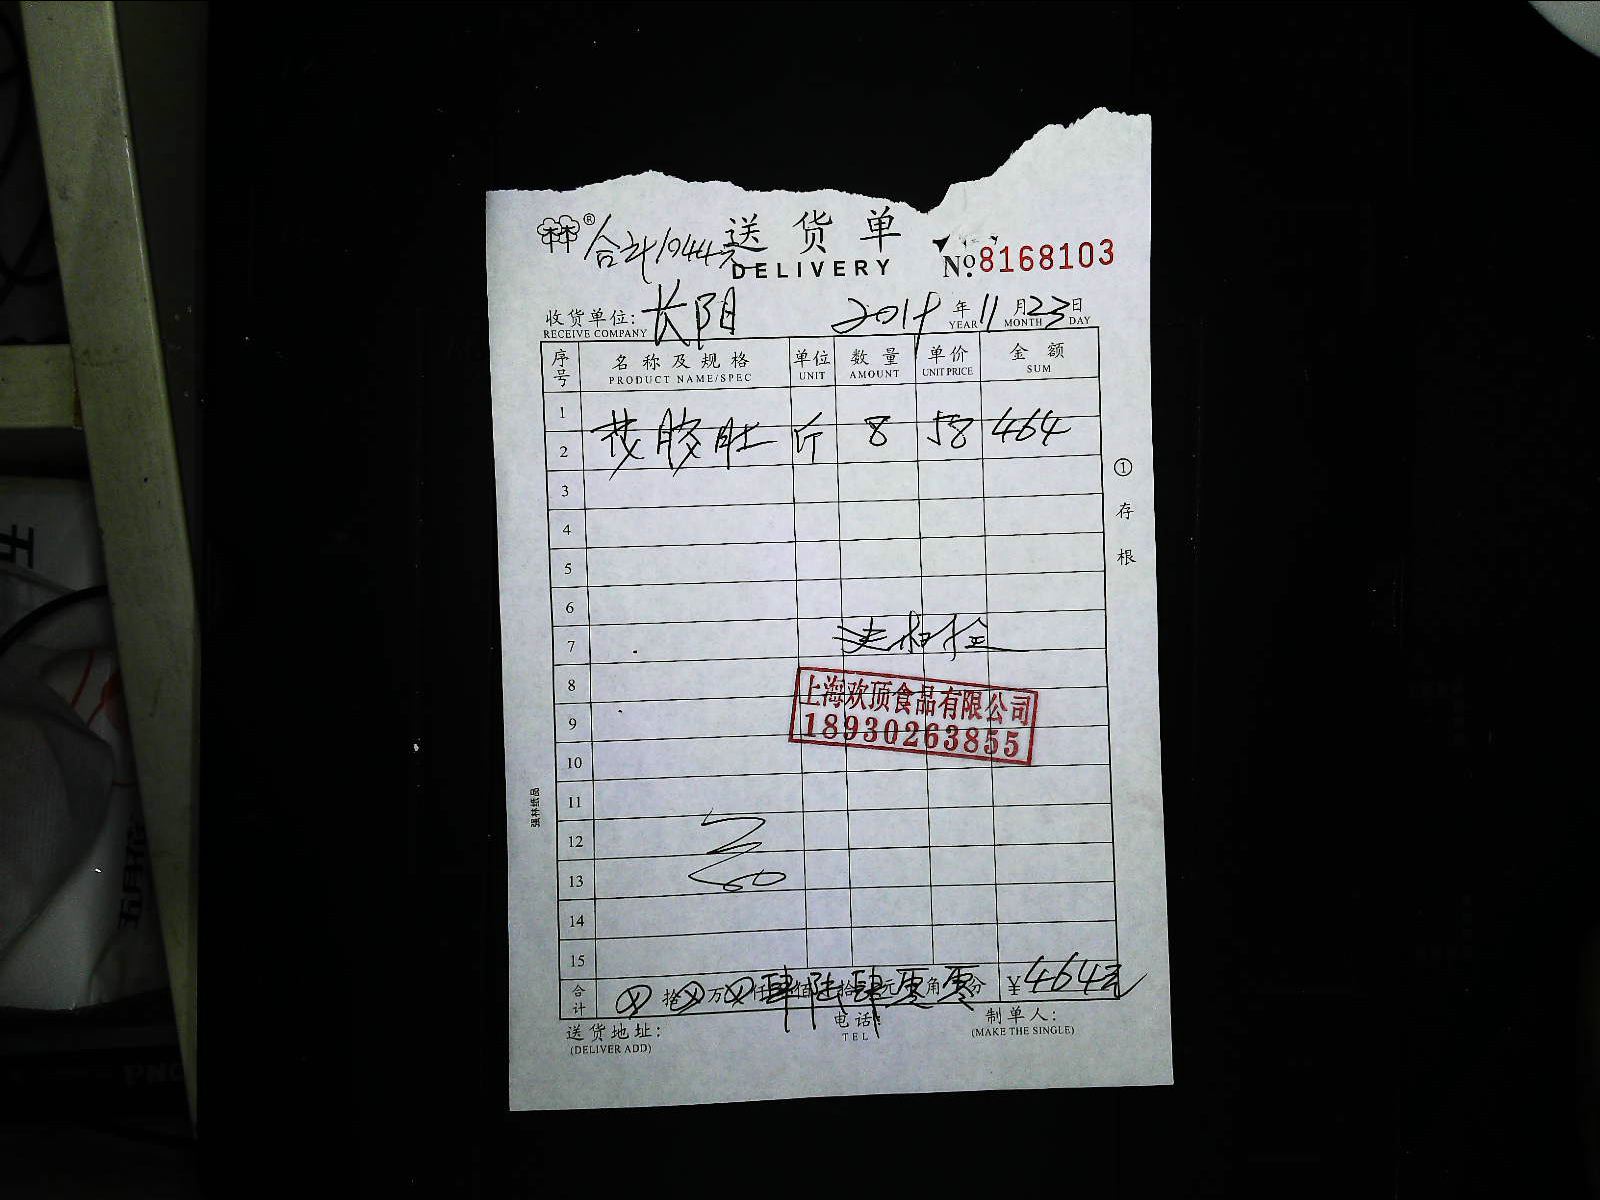 合计1944元 送货单
DELIVERY №8168103
收货单位: 长阳 2019 年 11 月 23 日
RECEIVE COMPANY YEAR MONTH DAY
序号 名称及规格 单位 数量 单价 金额
PRODUCT NAME/SPEC UNIT AMOUNT UNIT PRICE SUM
1
2 花胶肚 斤 8 58 464
3
4
5
6
7
8
9
10
11
12
13
14
15
① 存根
上海欢顶食品有限公司
18930263855
强林纸品
合计 ⊗ 拾 ⊗ 万 ⊗ 仟 肆 佰 陆 拾 肆 元 零 角 零 分 ¥464元
送货地址: 电话: 制单人:
(DELIVER ADD) TEL (MAKE THE SINGLE)